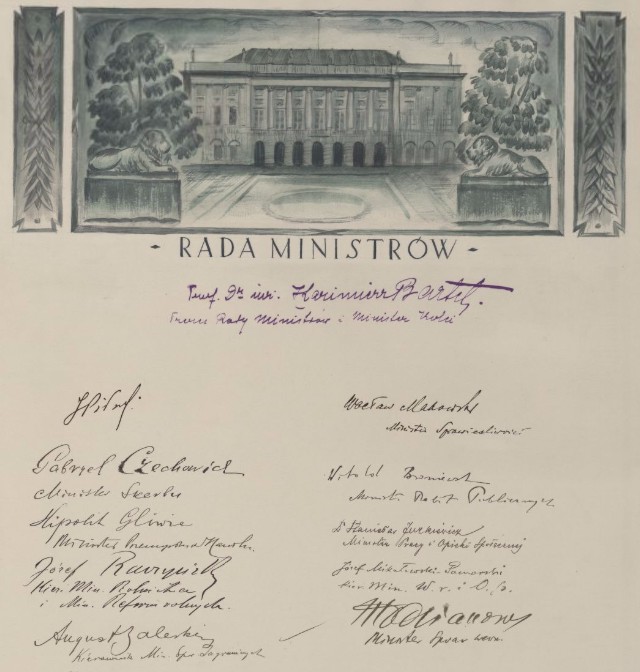 - RADA MINISTRÓW -
Prof. Dr inż. Kazimierz Bartel.
Prezes Rady Ministrów i Minister Kolei
Wacław Makowski
Minister Sprawiedliwości
Gabryel Czechowicz
Minister Skarbu
Witold Broniewski
Minister Robót Publicznych
Hipolit Gliwic
Minister Przemysłu i Handlu.
Dr Stanisław Jurkiewicz
Minister Pracy i Opieki Społecznej
Józef Raczyński
Kier. Min. Rolnictwa
i Min. Reform rolnych.
Józef Mikułowski-Pomorski
Kier. Min. W. r. i O. p.
Młodzianowski
Minister Spraw wewn.
August Zaleski
Kierownik Min. Spr. Zagranicznych